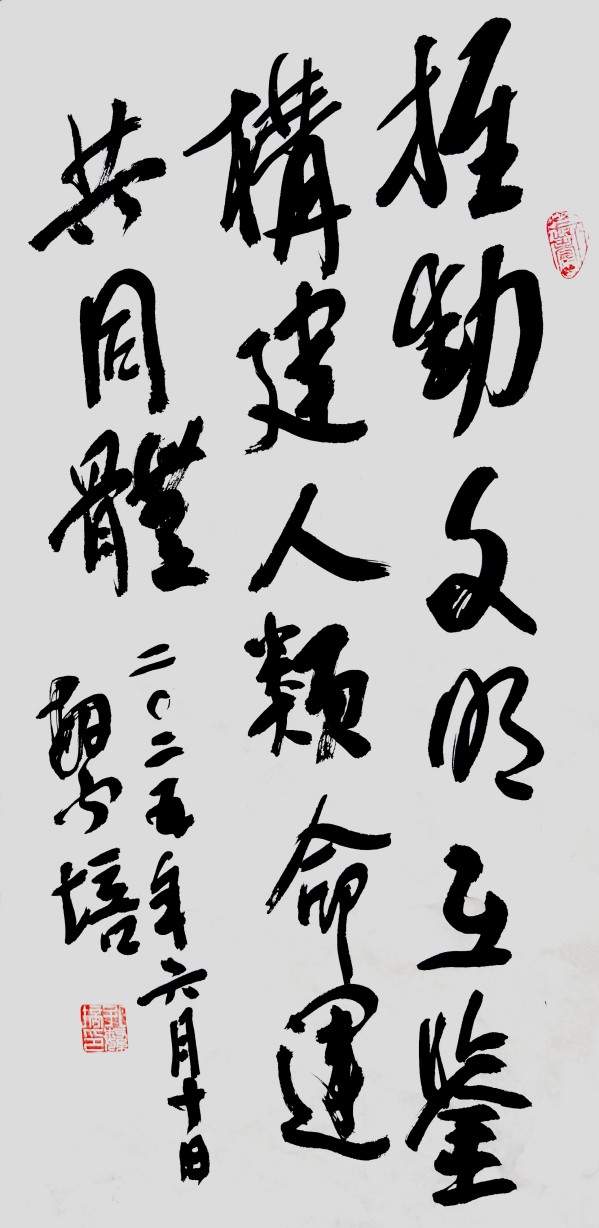 推動文明互鑒
構建人類命運
共同體
二〇二五年六月十日
培